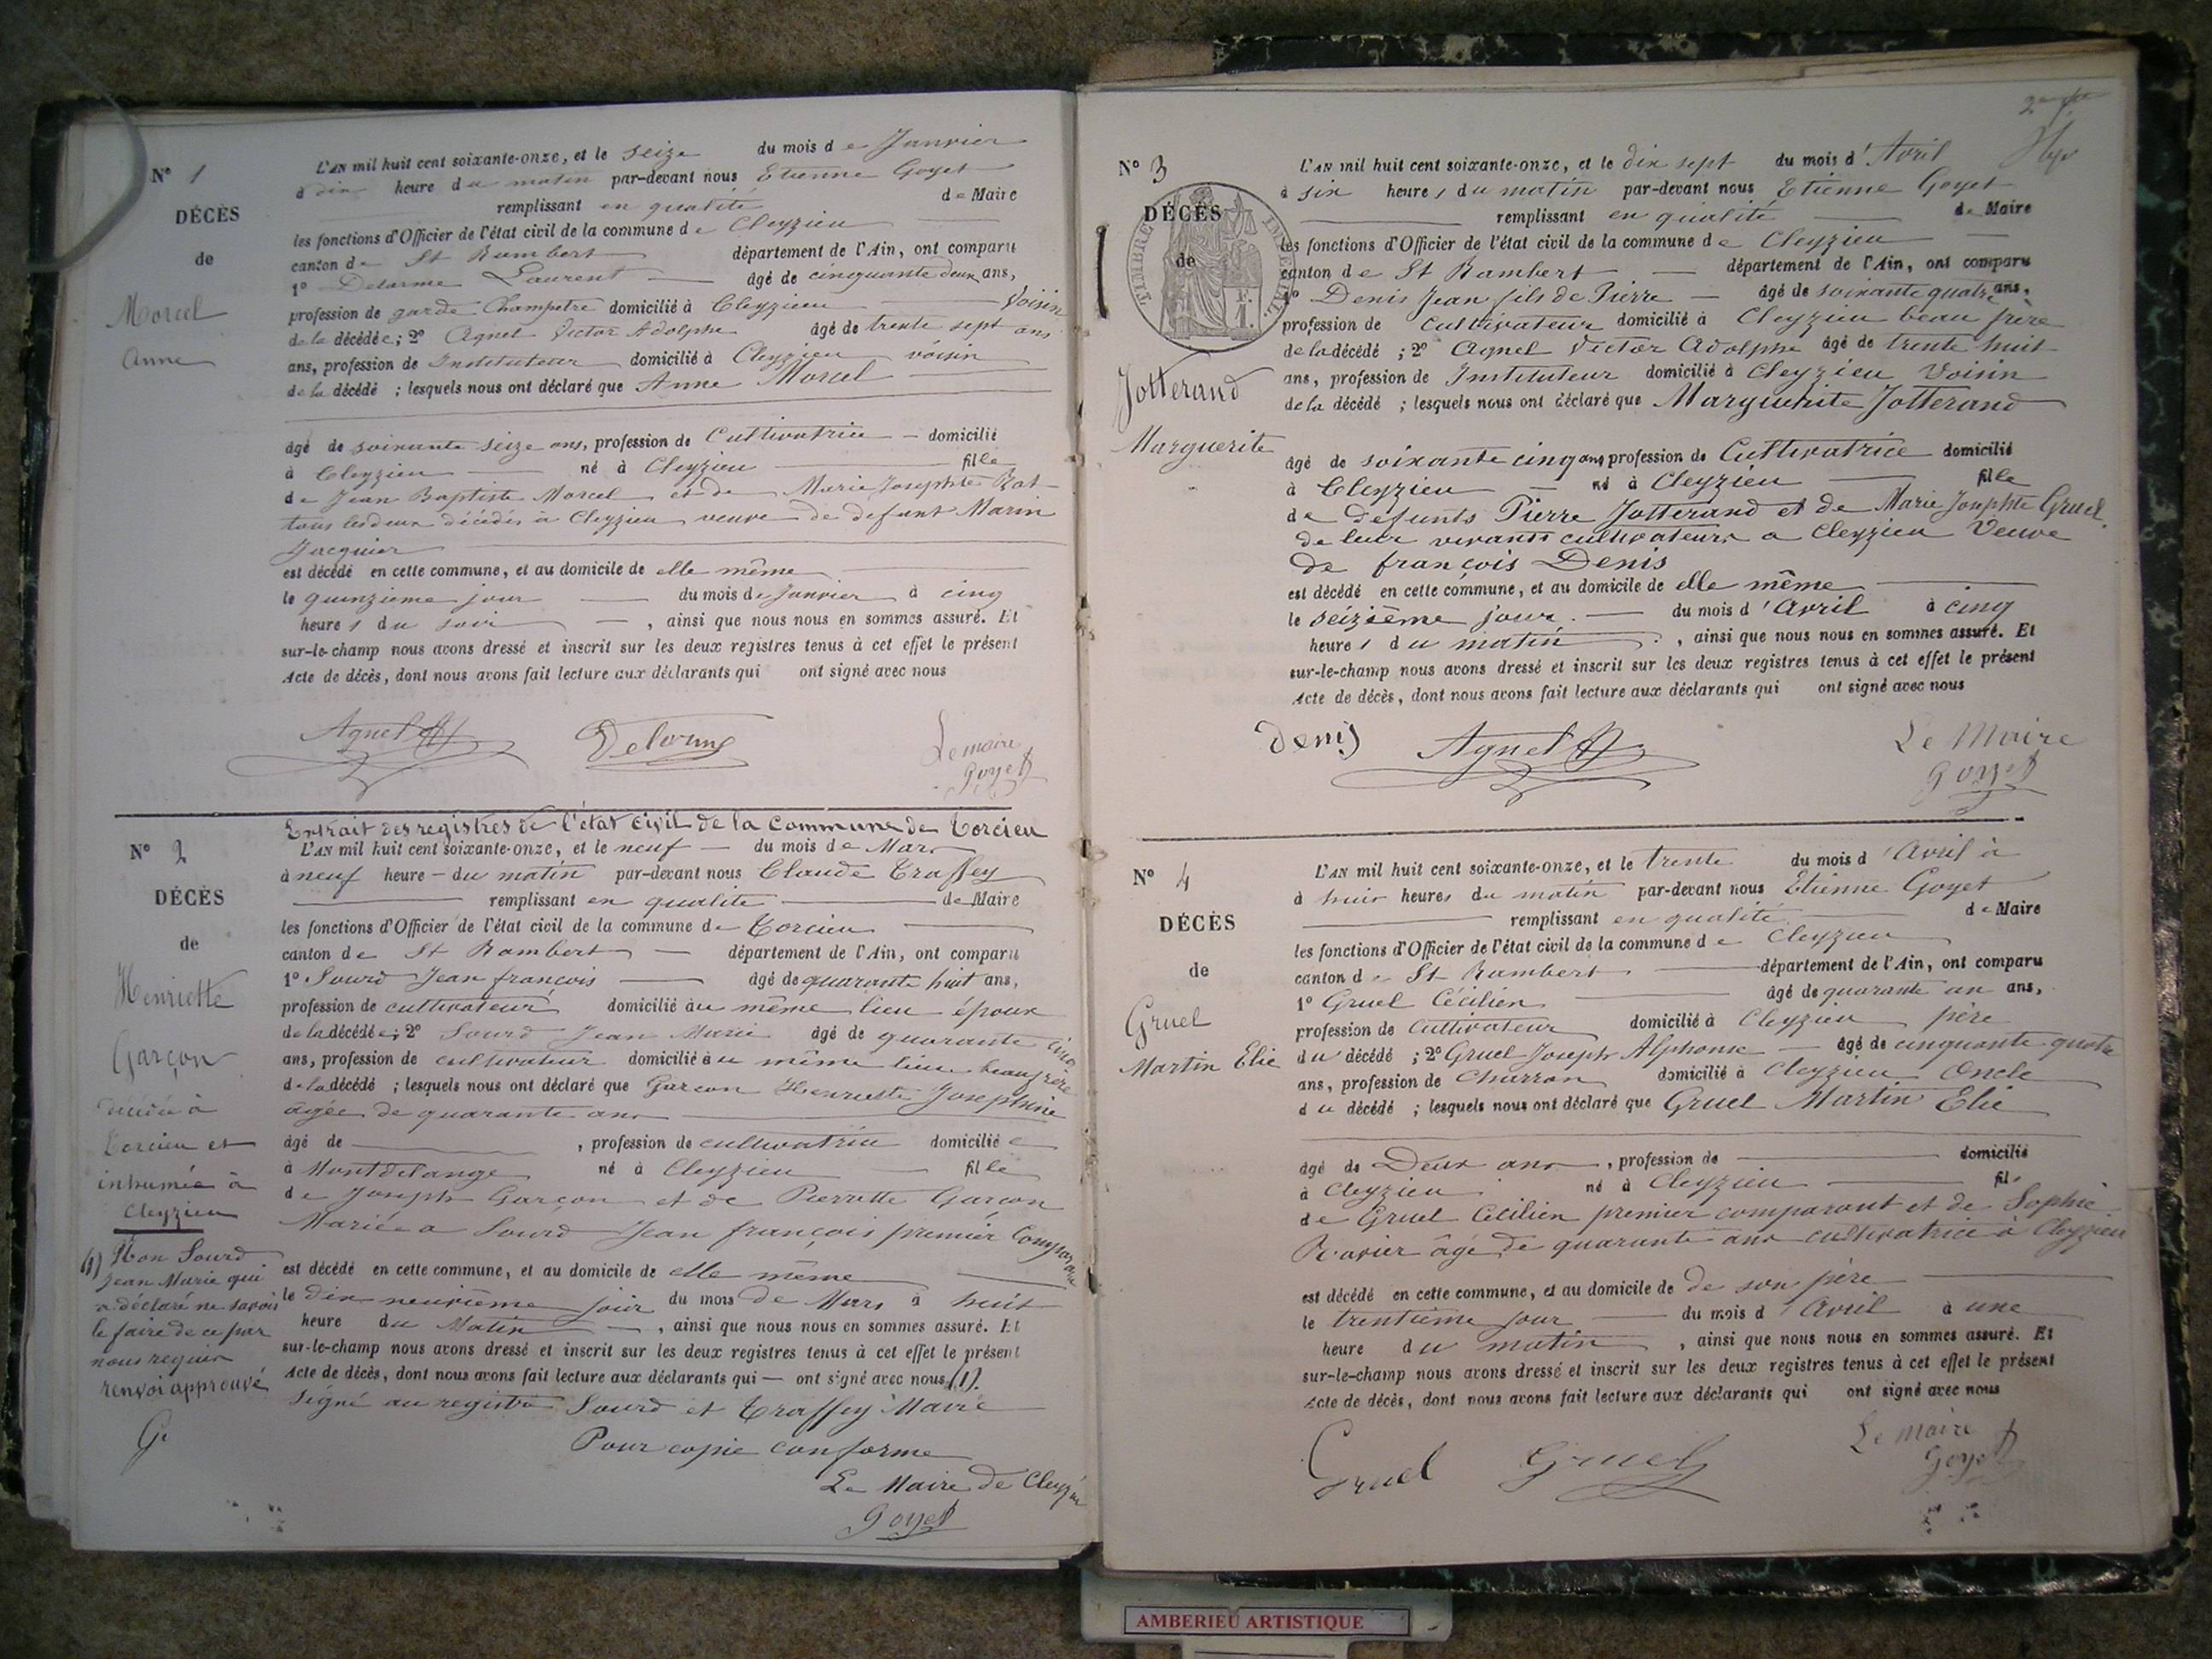 N° 1
DÉCÈS
de
Morcel
Anne
L'AN mil huit cent soixante-onze, et le seize du mois de Janvier
à dix heure du matin par-devant nous Etienne Goyet
remplissant en qualité de Maire
les fonctions d'Officier de l'état civil de la commune de Cleyzieu
canton de St Rambert département de l'Ain, ont comparu
1° Delorme Laurent âgé de cinquante deux ans,
profession de garde Champetre domicilié à Cleyzieu Voisin
de la décédée; 2° Agnel Victor Adolphe âgé de trente sept ans
ans, profession de Instituteur domicilié à Cleyzieu voisin
de la décédé ; lesquels nous ont déclaré que Anne Morcel
âgé de soixante seize ans, profession de Cultivatrice domicilié
à Cleyzieu né à Cleyzieu fille
de Jean Baptiste Morcel et de Marie Josephte
tous les deux décédés à Cleyzieu veuve de defunt Marin
Jacquier
est décédé en cette commune, et au domicile de elle même
le quinzieme jour du mois de Janvier à cinq
heures du soir , ainsi que nous nous en sommes assuré. Et
sur-le-champ nous avons dressé et inscrit sur les deux registres tenus à cet effet le présent
Acte de décès, dont nous avons fait lecture aux déclarants qui ont signé avec nous
Agnel Delorme Le maire
Goyet
N° 2
DÉCÈS
de
Henriette
Garçon
décédée à
Torcieu et
inhumée à
Cleyzieu
(1) Non Sourd
Jean Marie qui
a déclaré ne savoir
le faire de ce par
nous requis
renvoi approuvé
G.
Extrait des registres de l'état civil de la commune de Torcieu
L'AN mil huit cent soixante-onze, et le neuf du mois de Mars
à neuf heure du matin par-devant nous Claude Traffey
remplissant en qualité de Maire
les fonctions d'Officier de l'état civil de la commune de Torcieu
canton de St Rambert département de l'Ain, ont comparu
1° Sourd Jean françois âgé de quarante huit ans,
profession de cultivateur domicilié au même lieu époux
de la décédée; 2° Sourd Jean Marie âgé de quarante cinq
ans, profession de cultivateur domicilié au même lieu beau frère
de la décédé ; lesquels nous ont déclaré que Garçon Henriette Josephine
agée de quarante ans
âgé de , profession de cultivatrice domiciliée
à Montdelange né à Cleyzieu fille
de Joseph Garçon et de Pierrette Garçon
Mariée a Sourd Jean françois premier Comparant
est décédé en cette commune, et au domicile de elle même
le dix neuvième jour du mois de Mars à huit
heure du Matin , ainsi que nous nous en sommes assuré. Et
sur-le-champ nous avons dressé et inscrit sur les deux registres tenus à cet effet le présent
Acte de décès, dont nous avons fait lecture aux déclarants qui ont signé avec nous (1).
Signé au registre Sourd et Traffey Maire
Pour copie conforme
Le Maire de Cleyzieu
Goyet
N° 3
DÉCÈS
de
Jotterand
Marguerite
L'AN mil huit cent soixante-onze, et le dix sept du mois d'Avril
à six heures du matin par-devant nous Etienne Goyet
remplissant en qualité de Maire
les fonctions d'Officier de l'état civil de la commune de Cleyzieu
canton de St Rambert département de l'Ain, ont comparu
1° Denis Jean fils de Pierre âgé de soixante quatre ans,
profession de cultivateur domicilié à Cleyzieu beau frère
de la décédé ; 2° Agnel Victor Adolphe âgé de trente huit
ans, profession de Instituteur domicilié à Cleyzieu Voisin
de la décédé ; lesquels nous ont déclaré que Marguerite Jotterand
âgé de soixante cinq ans profession de Cultivatrice domicilié
à Cleyzieu né à Cleyzieu fille
de defunts Pierre Jotterand et de Marie Josephte Gruel
de leur vivants cultivateurs a Cleyzieu Veuve
de françois Denis
est décédé en cette commune, et au domicile de elle même
le seizième jour du mois d'Avril à cinq
heures du matin , ainsi que nous nous en sommes assuré. Et
sur-le-champ nous avons dressé et inscrit sur les deux registres tenus à cet effet le présent
Acte de décès, dont nous avons fait lecture aux déclarants qui ont signé avec nous
Denis Agnel Le Maire
Goyet
N° 4
DÉCÈS
de
Gruel
Martin Elie
L'AN mil huit cent soixante-onze, et le trente du mois d'Avril à
à huit heures du matin par-devant nous Etienne Goyet
remplissant en qualité de Maire
les fonctions d'Officier de l'état civil de la commune de Cleyzieu
canton de St Rambert département de l'Ain, ont comparu
1° Gruel Cécilien âgé de quarante un ans,
profession de Cultivateur domicilié à Cleyzieu père
du décédé ; 2° Gruel Joseph Alphonse âgé de cinquante quatre
ans, profession de Charron domicilié à Cleyzieu Oncle
du décédé ; lesquels nous ont déclaré que Gruel Martin Elie
âgé de Deux ans, profession de domicilié
à Cleyzieu né à Cleyzieu fils
de Gruel Cécilien premier comparant et de Sophie
Ravier âgé de quarante ans cultivatrice à Cleyzieu
est décédé en cette commune, et au domicile de de son père
le trentieme jour du mois d'Avril à une
heure du matin , ainsi que nous nous en sommes assuré. Et
sur-le-champ nous avons dressé et inscrit sur les deux registres tenus à cet effet le présent
Acte de décès, dont nous avons fait lecture aux déclarants qui ont signé avec nous
Gruel Gruel Le Maire
Goyet
AMBERIEU ARTISTIQUE